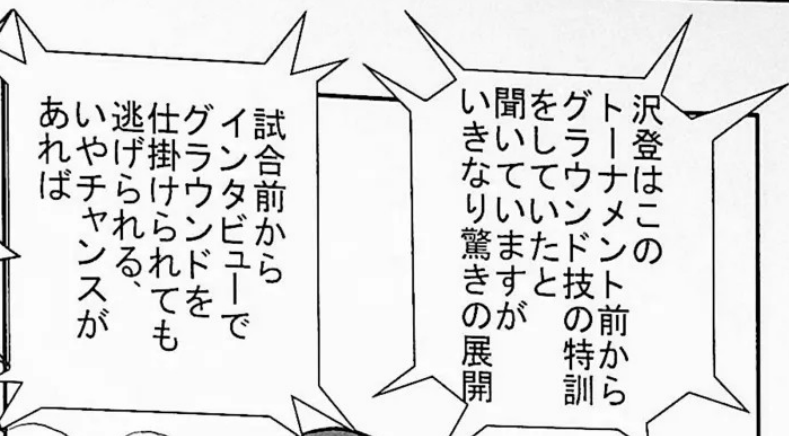 沢登はこの
トーナメント前から
グラウンド技の特訓
をしていたと
聞いていますが
いきなり驚きの展開
試合前から
インタビューで
グラウンドを
仕掛けられても
逃げられる、
いやチャンスが
あれば